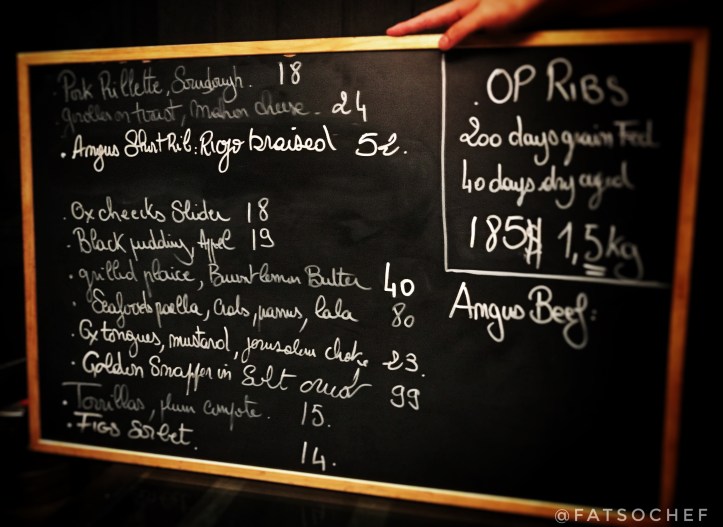 · Pork Rillette, Sourdough. 18
girolles on toast, Mahon cheese. 24
· Angus Short Rib: Rioja braised 52.
· Ox cheecks Slider 18
· Black pudding, Appel 19
· grilled plaice, Burnt lemon Butter 40
· Seafoods paella, Crabs, prawns, lala 80
· Ox tongues, mustard, jerusalem choke 23.
· Golden Snapper in Salt crust 99
· Torrillas, plum compote. 15.
· FIGS Sorbet. 14.
. OP RIBS
200 days grain Fed
40 days dry aged
185$ 1,5kg
Angus Beef:
@FATSOCHEF